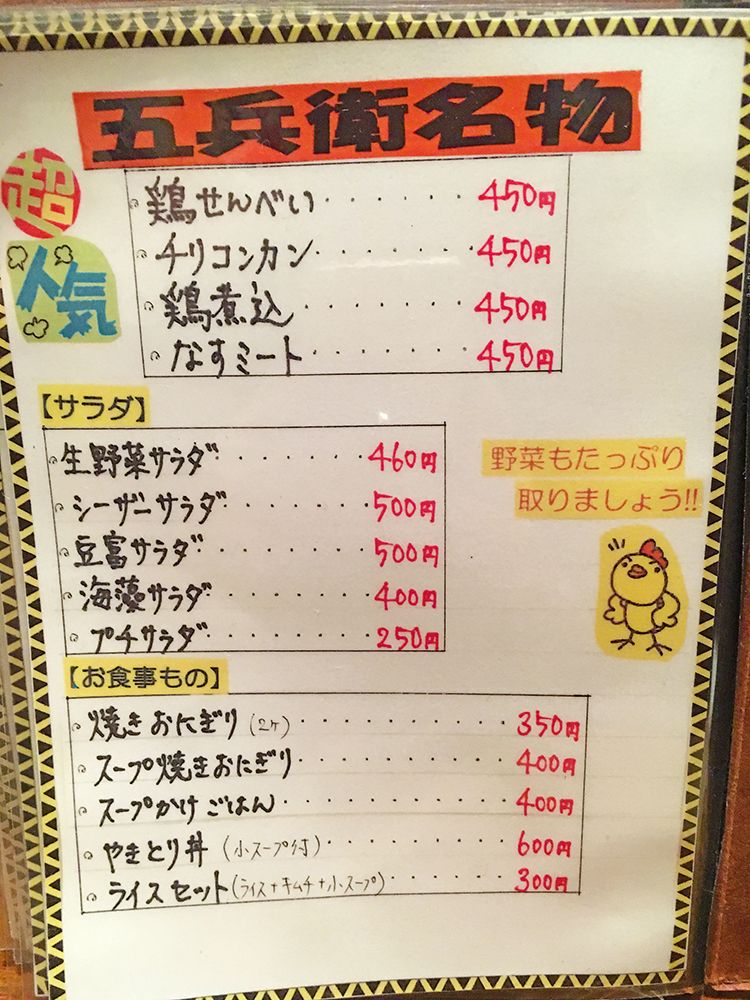 五兵衛名物
超
人気
鶏せんべい・・・・・・・450円
チリコンカン・・・・・・・450円
鶏煮込・・・・・・・450円
なすミート・・・・・・・450円
【サラダ】
生野菜サラダ・・・・・・460円
シーザーサラダ・・・・・・500円
豆富サラダ・・・・・・・500円
海藻サラダ・・・・・・・400円
プチサラダ・・・・・・・250円
野菜もたっぷり
取りましょう!!
【お食事もの】
焼きおにぎり(2ケ)・・・・・・・・・・350円
スープ焼きおにぎり・・・・・・・・・・400円
スープかけごはん・・・・・・・・・・400円
やきとり丼(小スープ付)・・・・・・・・600円
ライスセット(ライス+キムチ+小スープ)・・・・・・300円